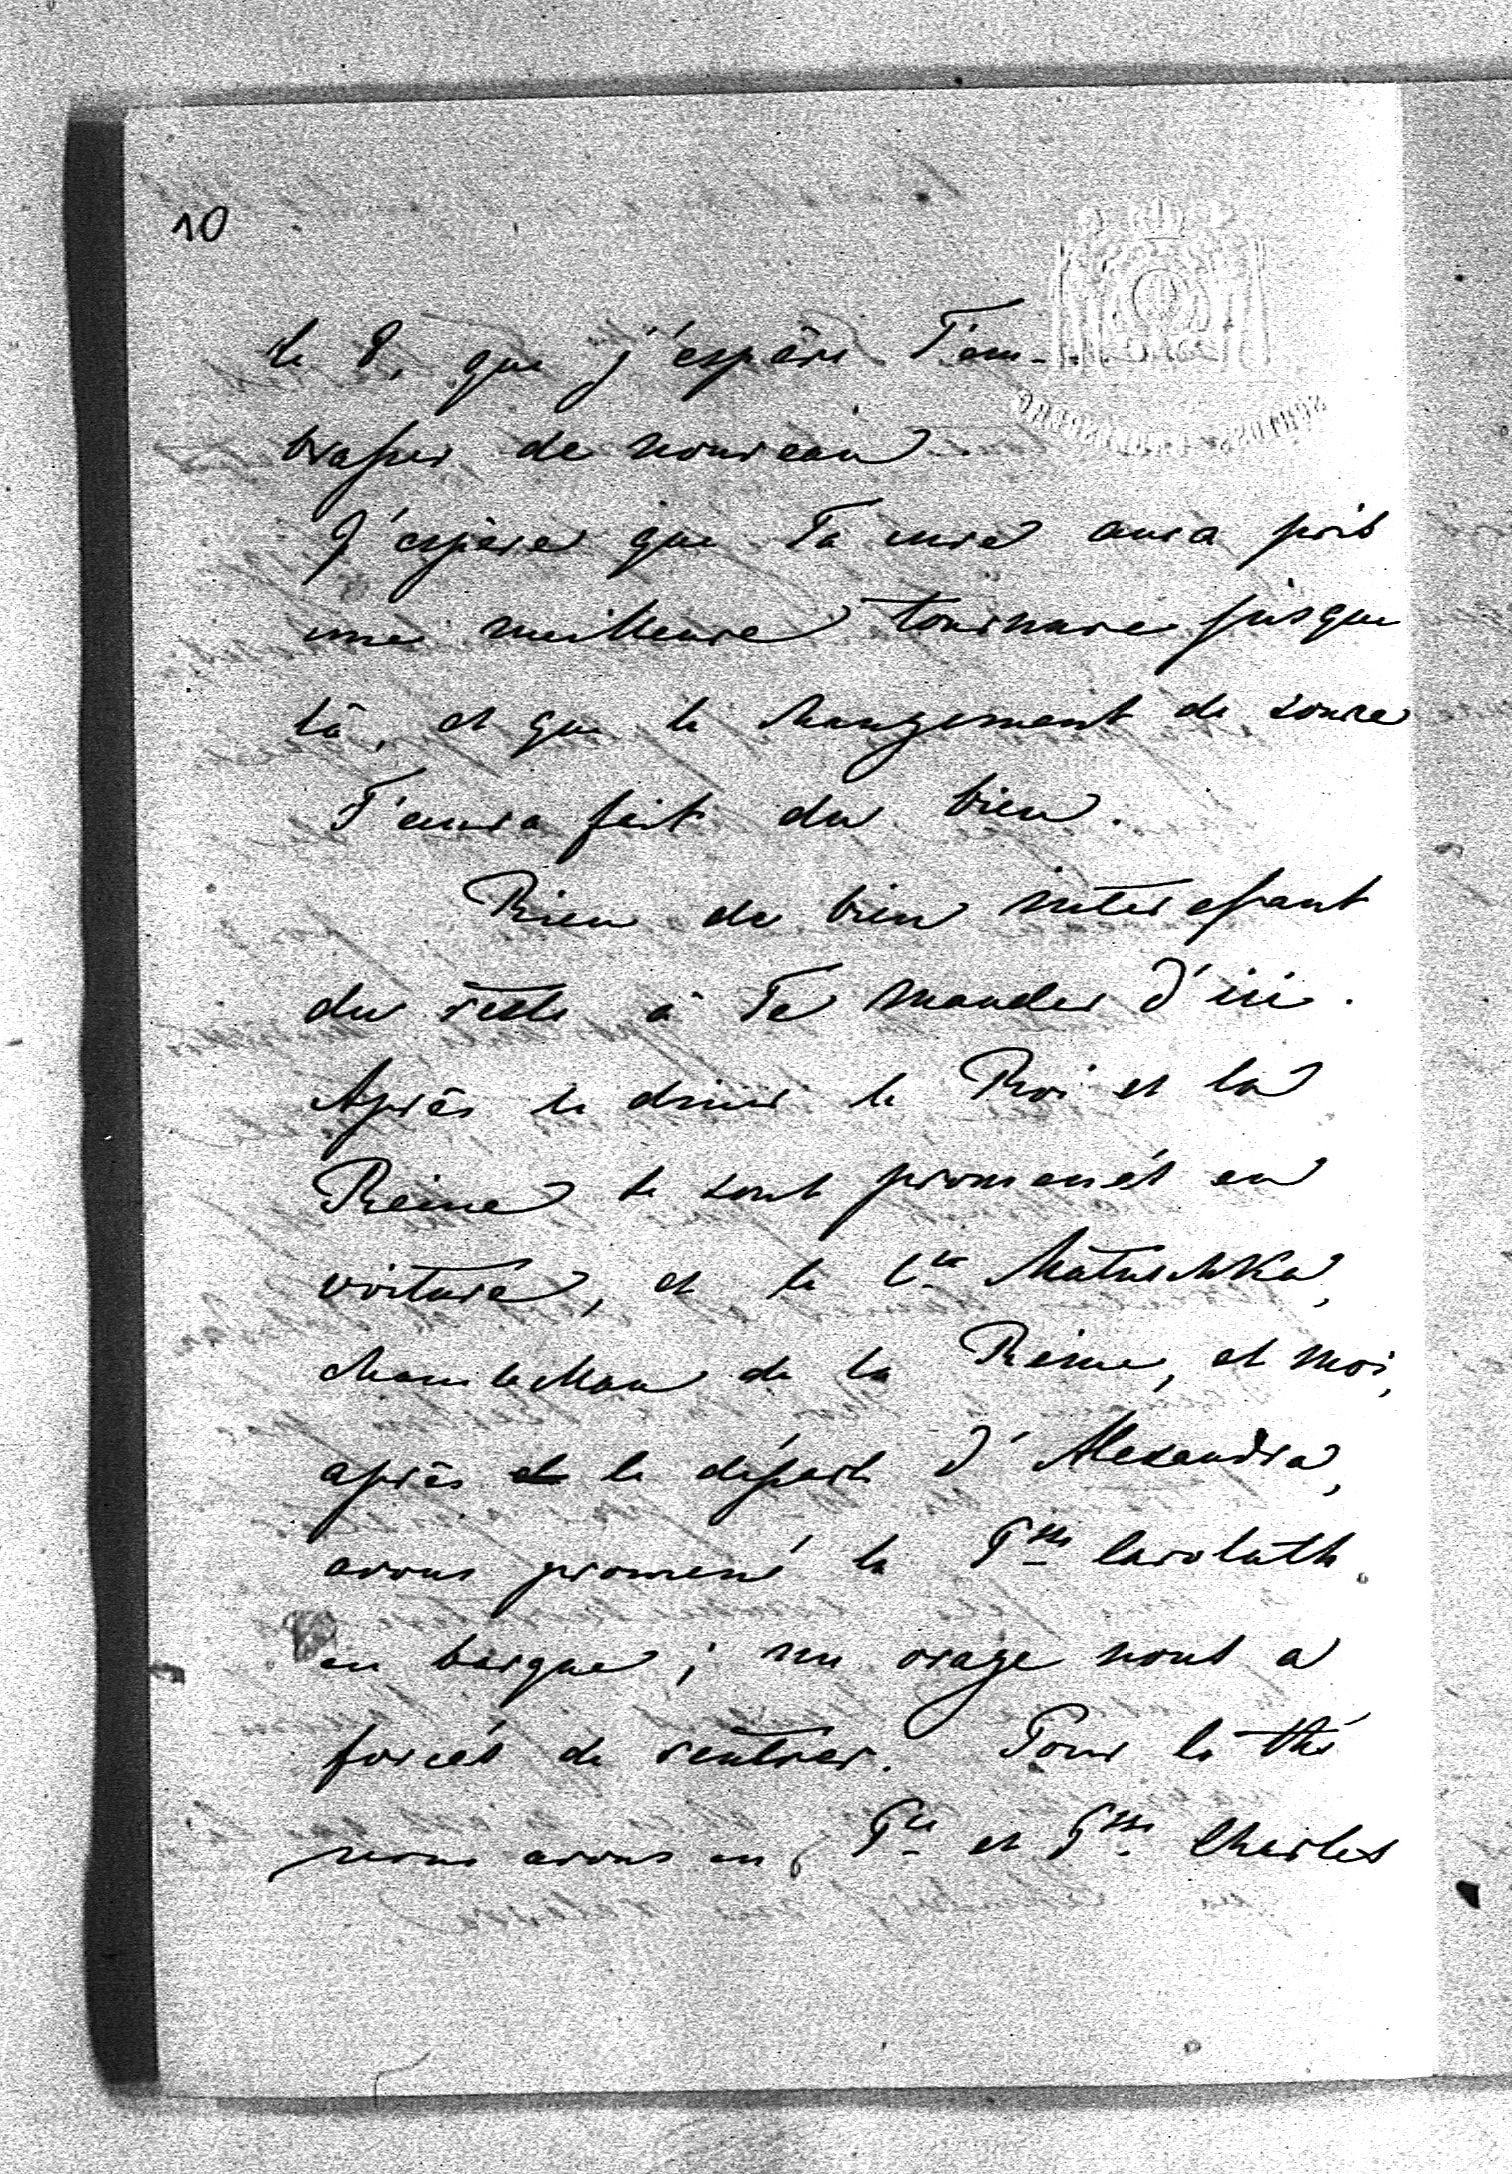 10
le 8, que j'espère T'em-
brasser de nouveau
J'espère que Ta cure aura pris
une meilleure tournure jusque
là, et que le changement de source
T'aura fait du bien.
Rien de bien interessant
du reste à Te mander d'ici.
Après le diner le Roi et la
Reine se sont promenés en
voiture, et le Cte Matuschka,
chambellan de la Reine, et moi,
après le départ d'Alexandra,
avons promené la Psse Carolath
en barque; un orage nous a
forcés de rentrer. Pour le thé
nous avons eu Pce et Psse Charles